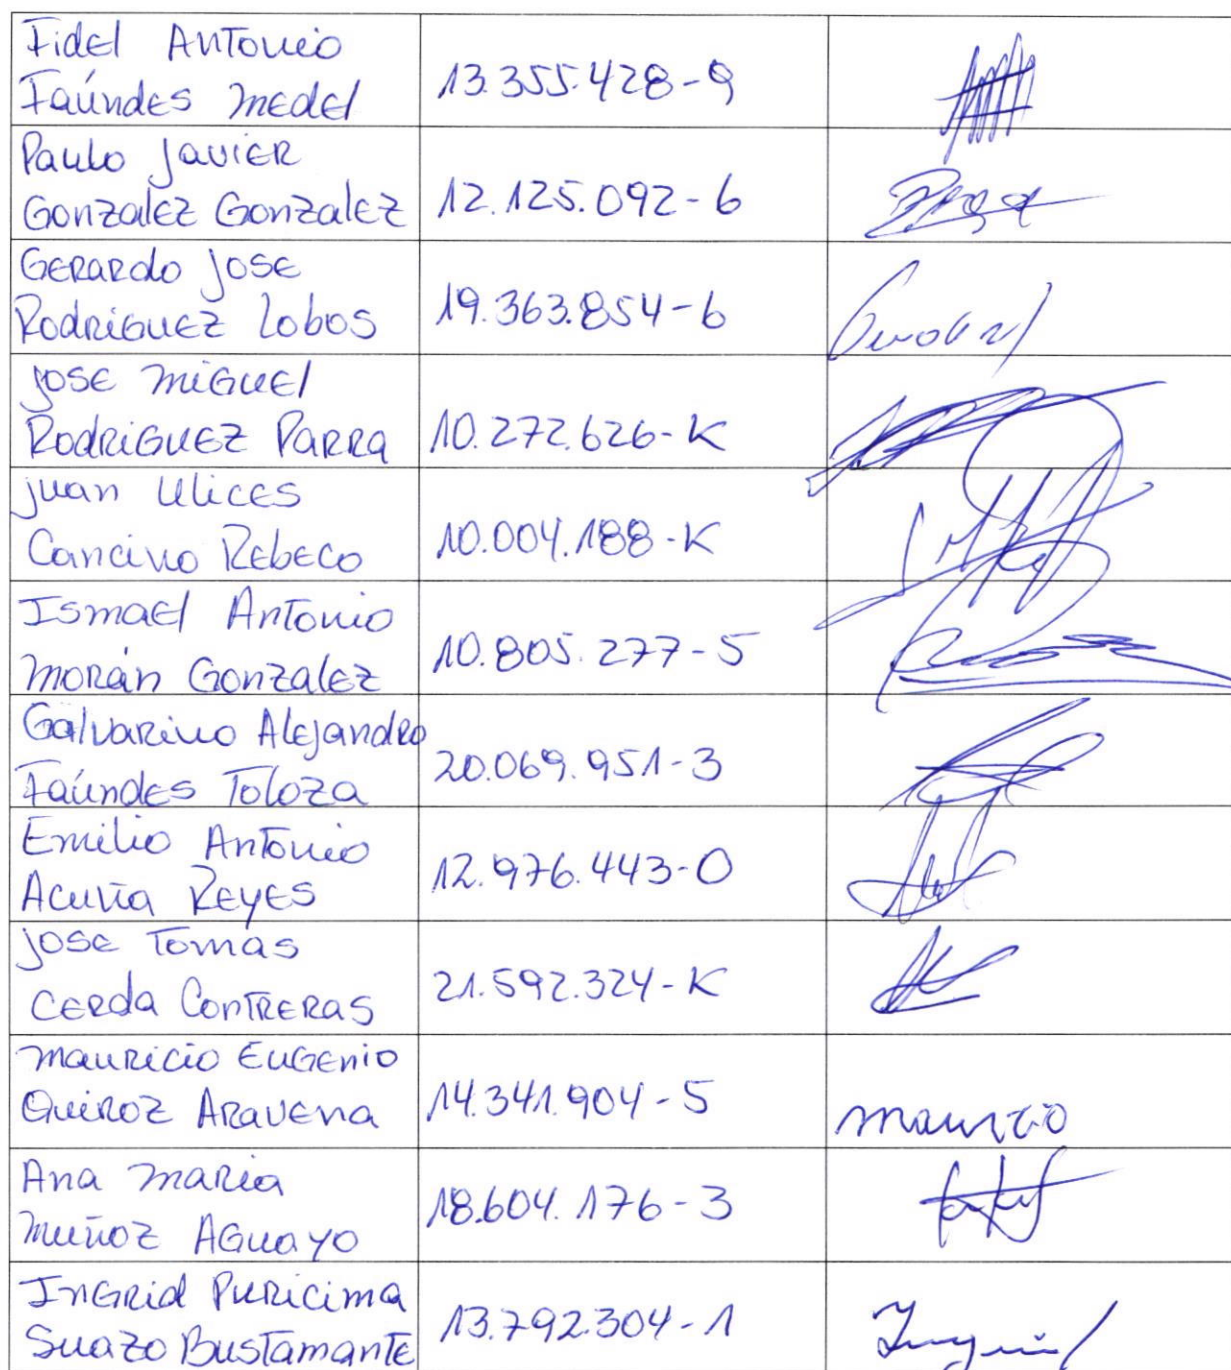 Fidel Antonio
Faúndes Medel
13.355.428-9
Paulo Javier
Gonzalez Gonzalez
12.125.092-6
Gerardo Jose
Rodriguez Lobos
19.363.854-6
Jose Miguel
Rodriguez Parra
10.272.626-K
Juan Ulices
Cancino Rebeco
10.004.188-K
Ismael Antonio
Morán Gonzalez
10.805.277-5
Galvarino Alejandro
Faúndes Toloza
20.069.951-3
Emilio Antonio
Acuña Reyes
12.976.443-0
Jose Tomas
Cerda Contreras
21.592.324-K
Mauricio Eugenio
Quiroz Aravena
14.341.904-5
Ana Maria
Muñoz Aguayo
18.604.176-3
Ingrid Puricima
Suazo Bustamante
13.792.304-1